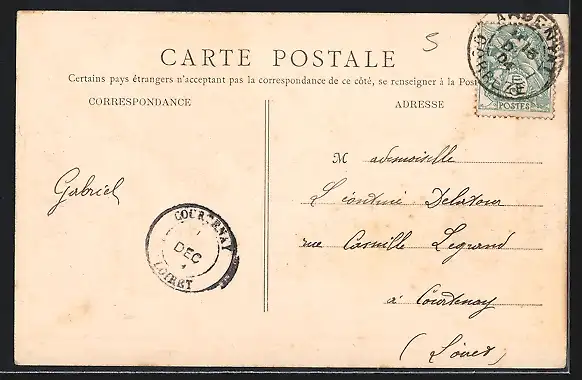 5
CARTE POSTALE
Certains pays étrangers n'acceptant pas la correspondance de ce côté, se renseigner à la Post
CORRESPONDANCE
ADRESSE
POSTES
Mademoiselle
Léontine Delatour
rue Camille Legrand
à Courtenay
(Loiret)
Gabriel
COURTENAY
DEC
LOIRET